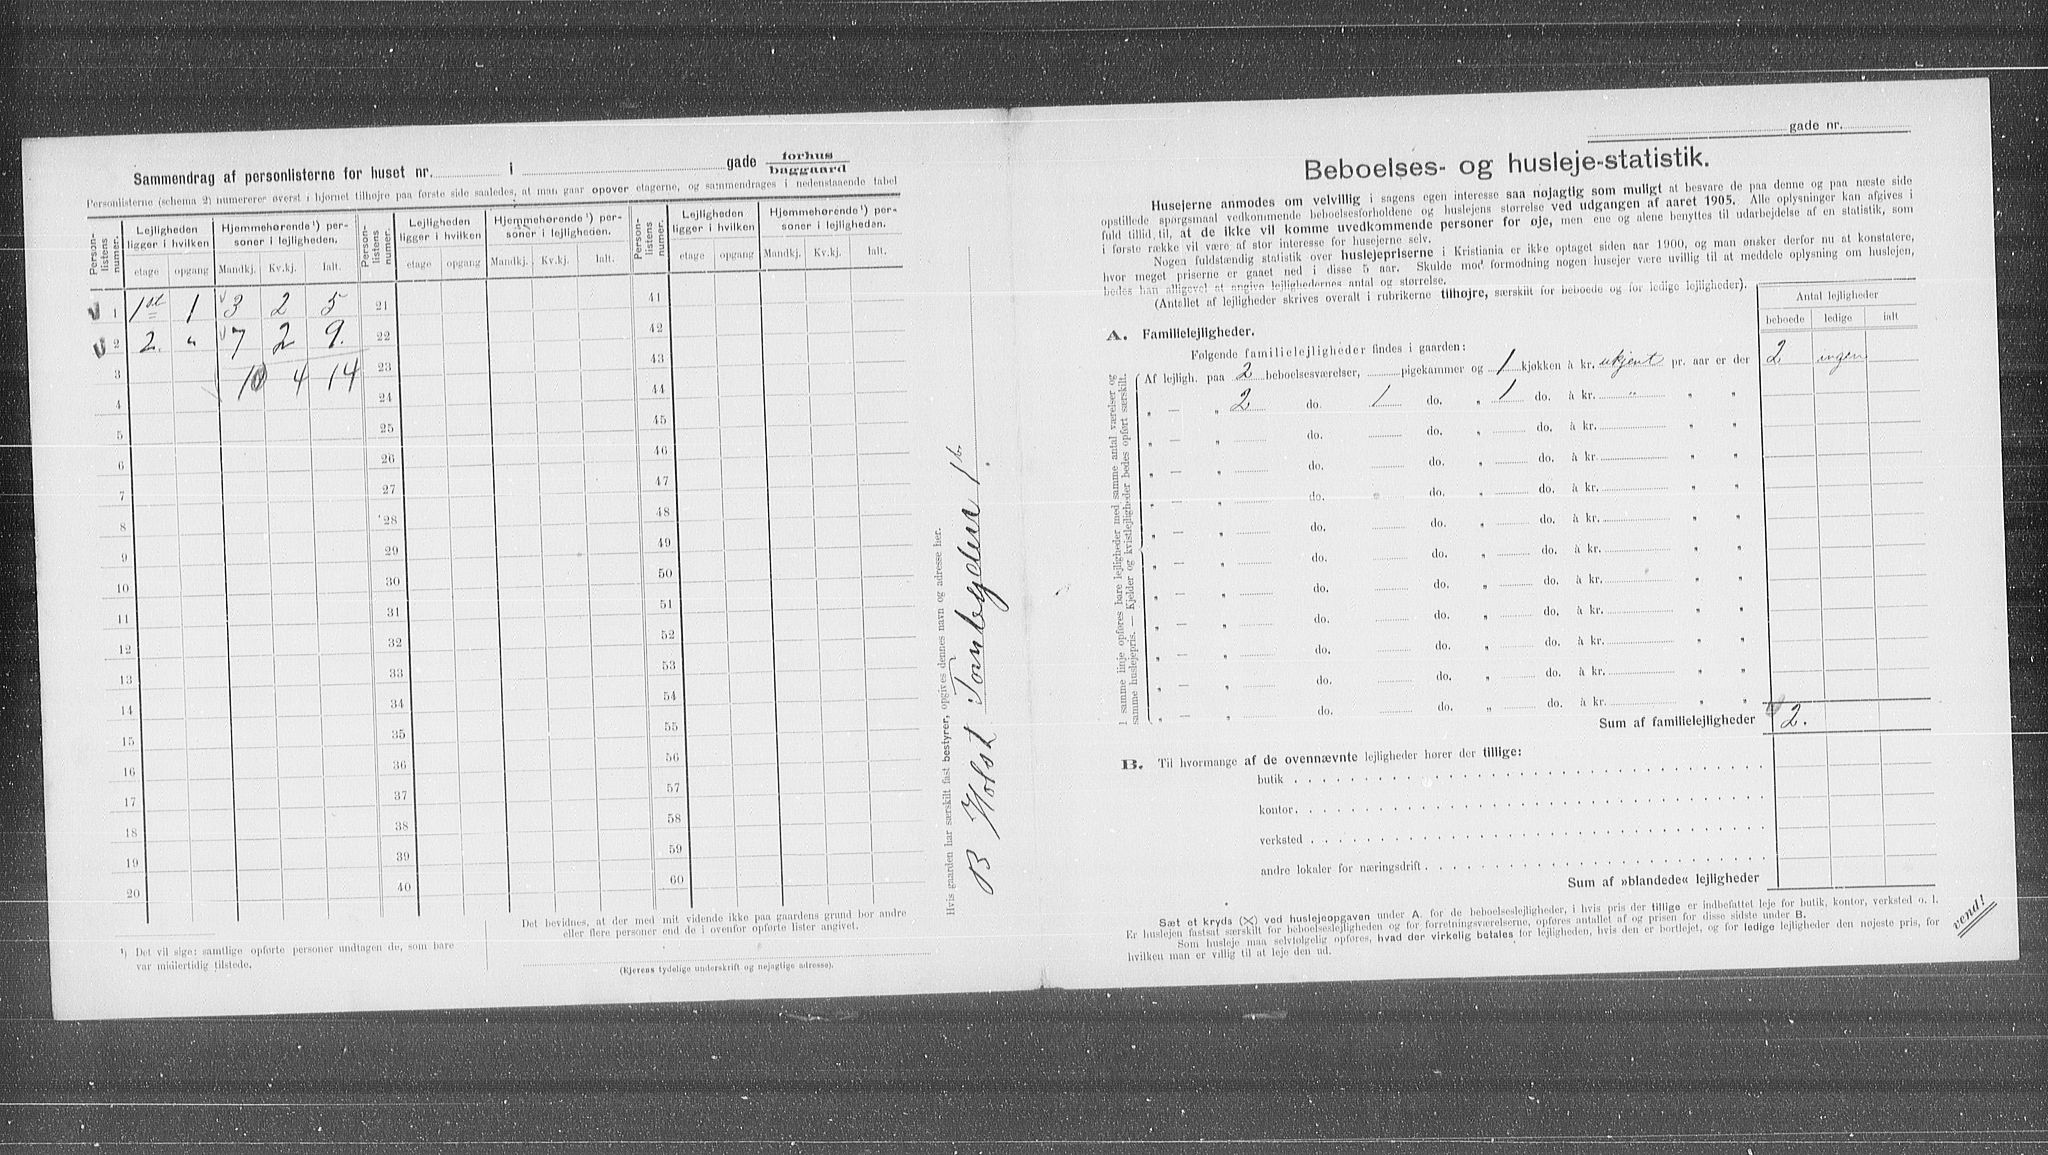 Sammendrag af personlisterne for huset nr. i gade forhus
baggaard
Personlisterne (schema 2) numererer øverst i hjørnet tilhøjre paa første side saaledes, at man gaar opover etagerne, og sammendrages i nedenstaaende tabel
Person-listens numer. Lejligheden ligger i hvilken Hjemmehørende ¹) per-soner i lejligheden. Person-listens numer. Lejligheden ligger i hvilken Hjemmehørende ¹) per-soner i lejligheden. Person-listens numer. Lejligheden ligger i hvilken Hjemmehørende ¹) per-soner i lejligheden.
etage opgang Mandkj. Kv.kj. Ialt. etage opgang Mandkj. Kv.kj. Ialt. etage opgang Mandkj. Kv.kj. Ialt.
1 1 1 3 2 5 21 41
2 2. " 7 2 9. 22 42
3 10 4 14 23 43
4 24 44
5 25 45
6 26 46
7 27 47
8 28 48
9 29 49
10 30 50
11 31 51
12 32 52
13 33 53
14 34 54
15 35 55
16 36 56
17 37 57
18 38 58
19 39 59
20 40 60
¹) Det vil sige: samtlige opførte personer undtagen de, som bare
var midlertidig tilstede.
Det bevidnes, at der med mit vidende ikke paa gaardens grund bor andre
eller flere personer end de i ovenfor opførte lister angivet.
(Ejerens tydelige underskrift og nøjagtige adresse).
Hvis gaarden har særskilt fast bestyrer, opgives dennes navn og adresse her.
B Holst
gade nr.
Beboelses- og husleje-statistik.
Husejerne anmodes om velvillig i sagens egen interesse saa nøjagtig som muligt at besvare de paa denne og paa næste side
opstillede spørgsmaal vedkommende beboelsesforholdene og huslejens størrelse ved udgangen af aaret 1905. Alle oplysninger kan afgives i
fuld tillid til, at de ikke vil komme uvedkommende personer for øje, men ene og alene benyttes til udarbejdelse af en statistik, som
i første række vil være af stor interesse for husejerne selv.
Nogen fuldstændig statistik over huslejepriserne i Kristiania er ikke optaget siden aar 1900, og man ønsker derfor nu at konstatere,
hvor meget priserne er gaaet ned i disse 5 aar. Skulde mod formodning nogen husejer være uvillig til at meddele oplysning om huslejen,
bedes han alligevel at angive lejlighedernes antal og størrelse.
(Antallet af lejligheder skrives overalt i rubrikerne tilhøjre, særskilt for beboede og for ledige lejligheder).
Antal lejligheder
beboede ledige ialt
A. Familielejligheder.
Følgende familielejligheder findes i gaarden:
I samme linje opføres bare lejligheder med samme antal værelser og
samme huslejepris. — Kjelder og kvistlejligheder bedes opført særskilt.
Af lejligh. paa 2 beboelsesværelser, pigekammer og 1 kjøkken à kr. ukjent pr. aar er der 2 ingen
„ — „ 2 do. 1 do. „ 1 do. à kr. " „ „
„ — „ do. do. „ do. à kr. „ „
„ — „ do. do. „ do. à kr. „ „
„ — „ do. do. „ do. à kr. „ „
„ — „ do. do. „ do. à kr. „ „
„ — „ do. do. „ do. à kr. „ „
„ — „ do. do. „ do. à kr. „ „
„ — „ do. do. „ do. à kr. „ „
„ — „ do. do. „ do. à kr. „ „
„ — „ do. do. „ do. à kr. „ „
„ — „ do. do. „ do. à kr. „ „
Sum af familielejligheder 2.
B. Til hvormange af de ovennævnte lejligheder hører der tillige:
butik
kontor
verksted
andre lokaler for næringsdrift
Sum af »blandede« lejligheder
Sæt et kryds (X) ved huslejeopgaven under A. for de beboelseslejligheder, i hvis pris der tillige er indbefattet leje for butik, kontor, verksted o. l.
Er huslejen fastsat særskilt for beboelseslejligheden og for forretningsværelserne, opføres antallet af og prisen for disse sidste under B.
Som husleje maa selvfølgelig opføres, hvad der virkelig betales for lejligheden, hvis den er bortlejet, og for ledige lejligheder den nøjeste pris, for
hvilken man er villig til at leje den ud.
vend!